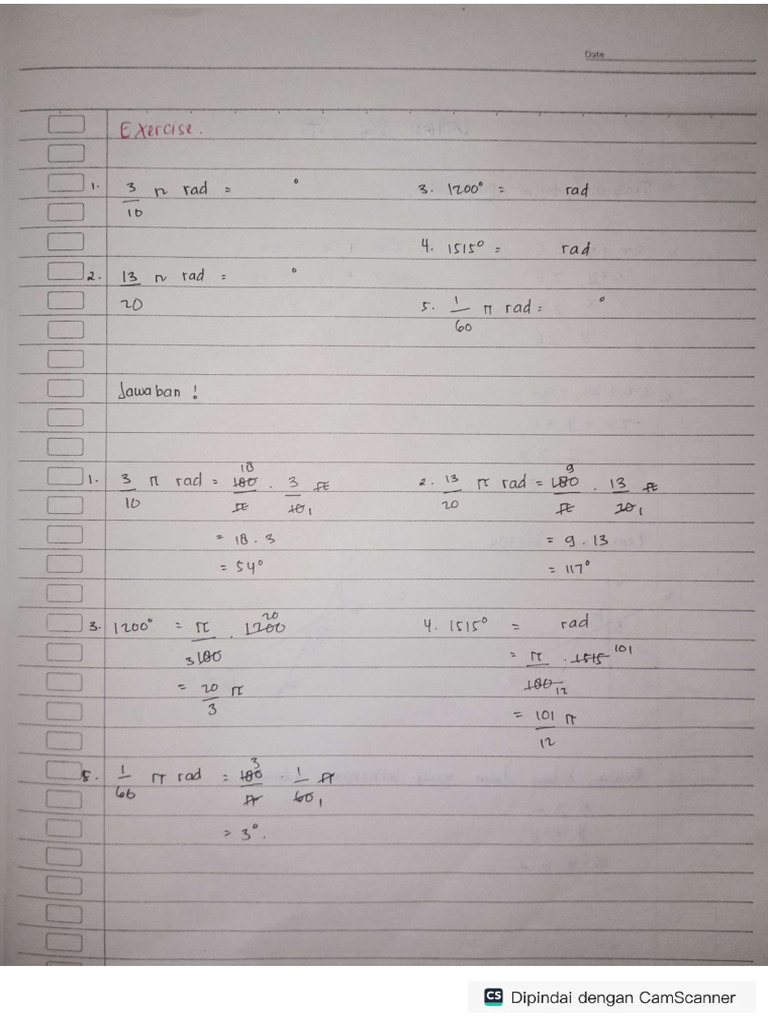 Date
Exercise.
1. 3/10 π rad = °
3. 1200° = rad
4. 1515° = rad
2. 13/20 π rad = °
5. 1/60 π rad = °
Jawaban !
1. 3/10 π rad = 180/π . 3/10 π 18 1
= 18 . 3
= 54°
2. 13/20 π rad = 180/π . 13/20 π 9 1
= 9 . 13
= 117°
3. 1200° = π/180 . 1200 20 3
= 20/3 π
4. 1515° = rad
= π/180 . 1515 101 12
= 101/12 π
5. 1/60 π rad = 180/π . 1/60 π 3 1
= 3°.
CS Dipindai dengan CamScanner